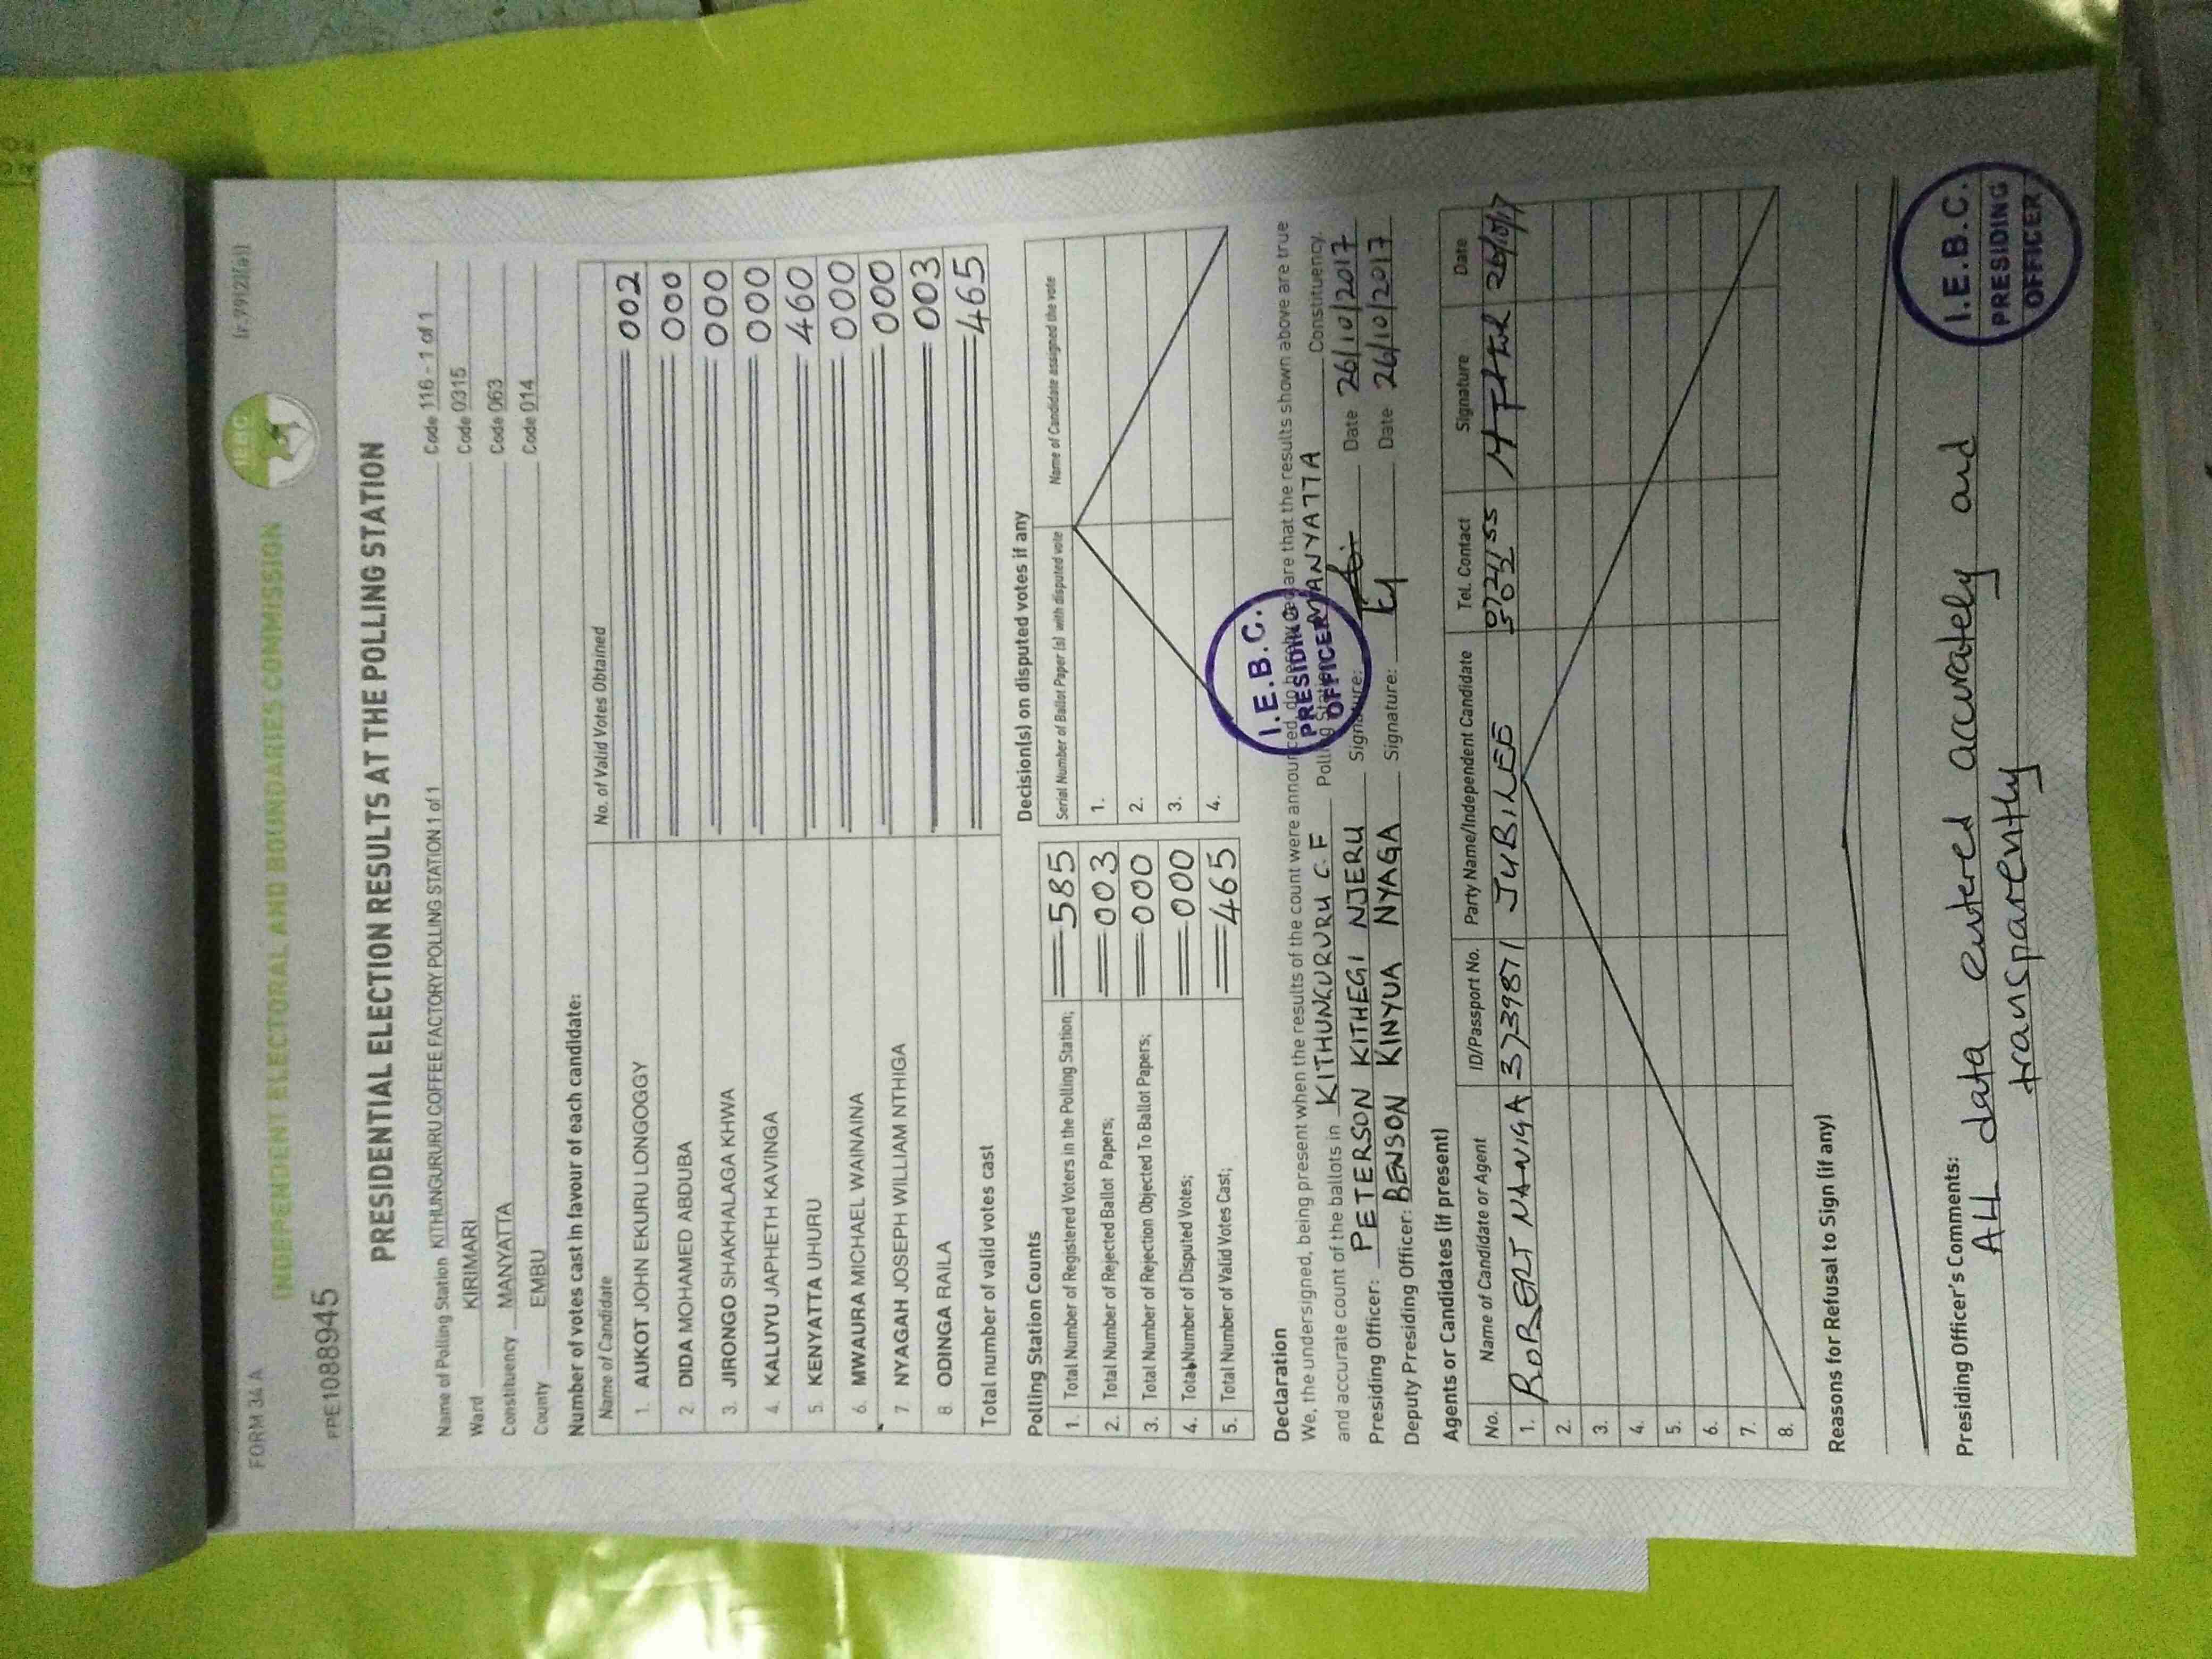 FORM 34 A
(r.79(2)(a))
INDEPENDENT ELECTORAL AND BOUNDARIES COMMISSION
IEBC
PPE1088945
PRESIDENTIAL ELECTION RESULTS AT THE POLLING STATION
Name of Polling Station KITHUNGURURU COFFEE FACTORY POLLING STATION 1 of 1 Code 116 - 1 of 1
Ward KIRIMARI Code 0315
Constituency MANYATTA Code 063
County EMBU Code 014
Number of votes cast in favour of each candidate:
Name of Candidate No. of Valid Votes Obtained
1. AUKOT JOHN EKURU LONGOGGY 002
2 DIDA MOHAMED ABDUBA 000
3. JIRONGO SHAKHALAGA KHWA 000
4. KALUYU JAPHETH KAVINGA 000
5. KENYATTA UHURU 460
6. MWAURA MICHAEL WAINAINA 000
7 NYAGAH JOSEPH WILLIAM NTHIGA 000
8. ODINGA RAILA 003
Total number of valid votes cast 465
Polling Station Counts
1. Total Number of Registered Voters in the Polling Station; 585
2. Total Number of Rejected Ballot Papers; 003
3. Total Number of Rejection Objected To Ballot Papers; 000
4. Total Number of Disputed Votes; 000
5. Total Number of Valid Votes Cast; 465
Decision(s) on disputed votes if any
Serial Number of Ballot Paper (s) with disputed vote Name of Candidate assigned the vote
1.
2.
3.
4.
Declaration
We, the undersigned, being present when the results of the count were announced, do hereby declare that the results shown above are true
and accurate count of the ballots in KITHUNGURURU C.F Polling Station MANYATTA Constituency.
Presiding Officer: PETERSON KITHEGI NJERU Signature: Date 26/10/2017
Deputy Presiding Officer: BENSON KINYUA NYAGA Signature: Date 26/10/2017
I.E.B.C.
PRESIDING
OFFICER
Agents or Candidates (if present)
No. Name of Candidate or Agent ID/Passport No. Party Name/Independent Candidate Tel. Contact Signature Date
1. ROBERT 3739871 JUBILEE 26/10/17
2.
3.
4.
5.
6.
7.
8.
Reasons for Refusal to Sign (if any)
Presiding Officer's Comments:
ALL data entered accurately and
transparently
I.E.B.C.
PRESIDING
OFFICER